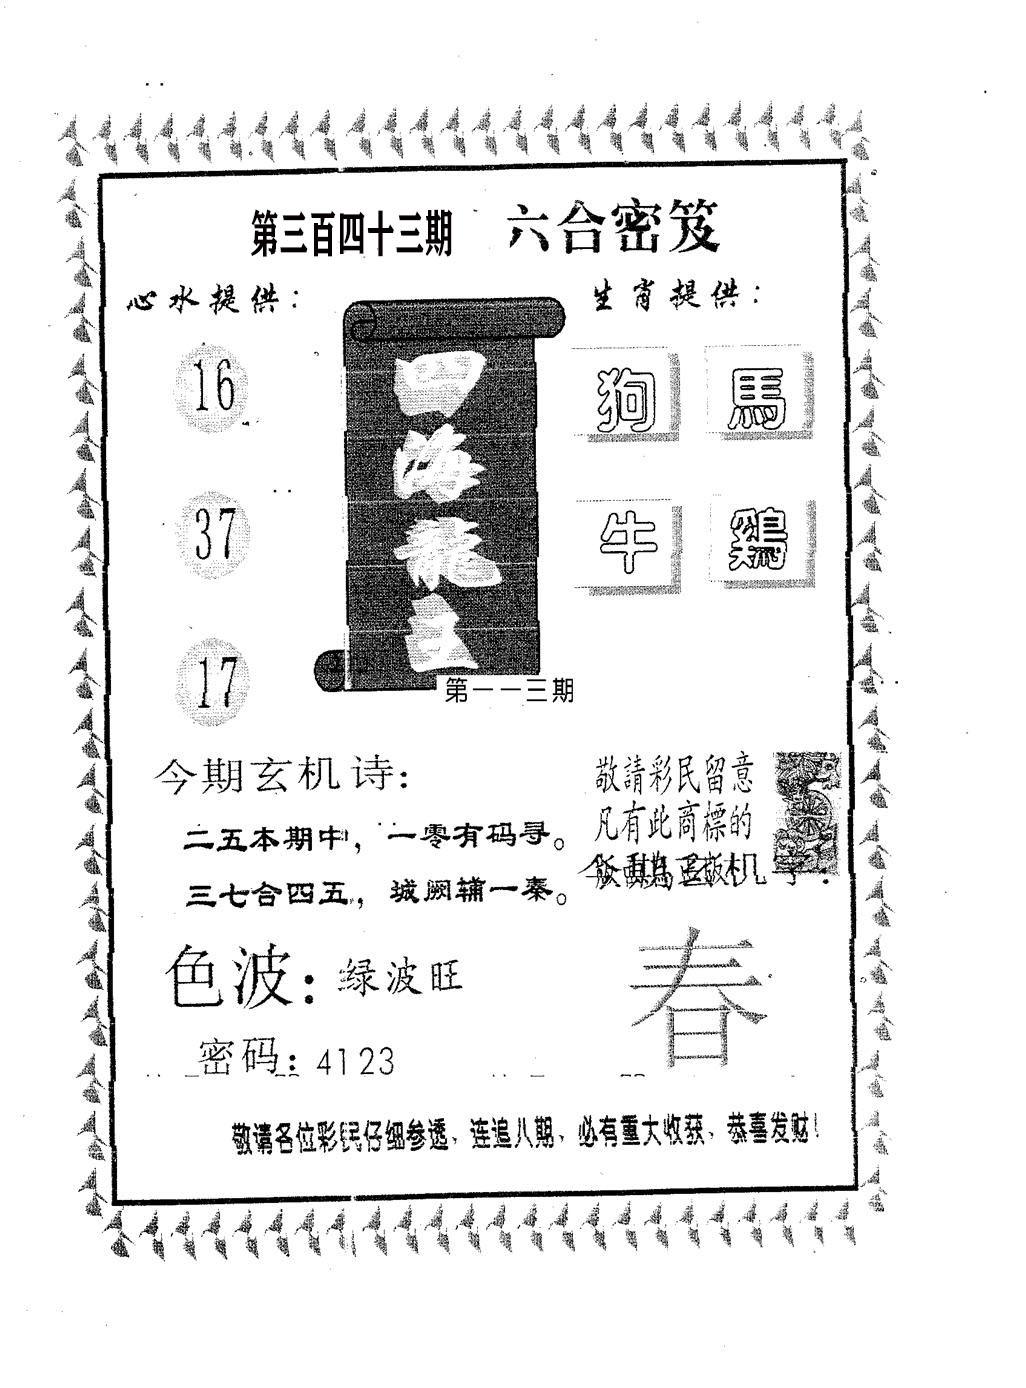 第三百四十三期 六合密笈
心水提供：
生肖提供：
16
37
17
四海龍王
第一一三期
狗 馬
牛 鷄
今期玄机诗：
二五本期中，一零有码寻。
三七合四五，城阙辅一秦。
敬請彩民留意
凡有此商標的
春
色波：绿波旺
密码：4123
敬请各位彩民仔细参透、连追八期、必有重大收获、恭喜发财！